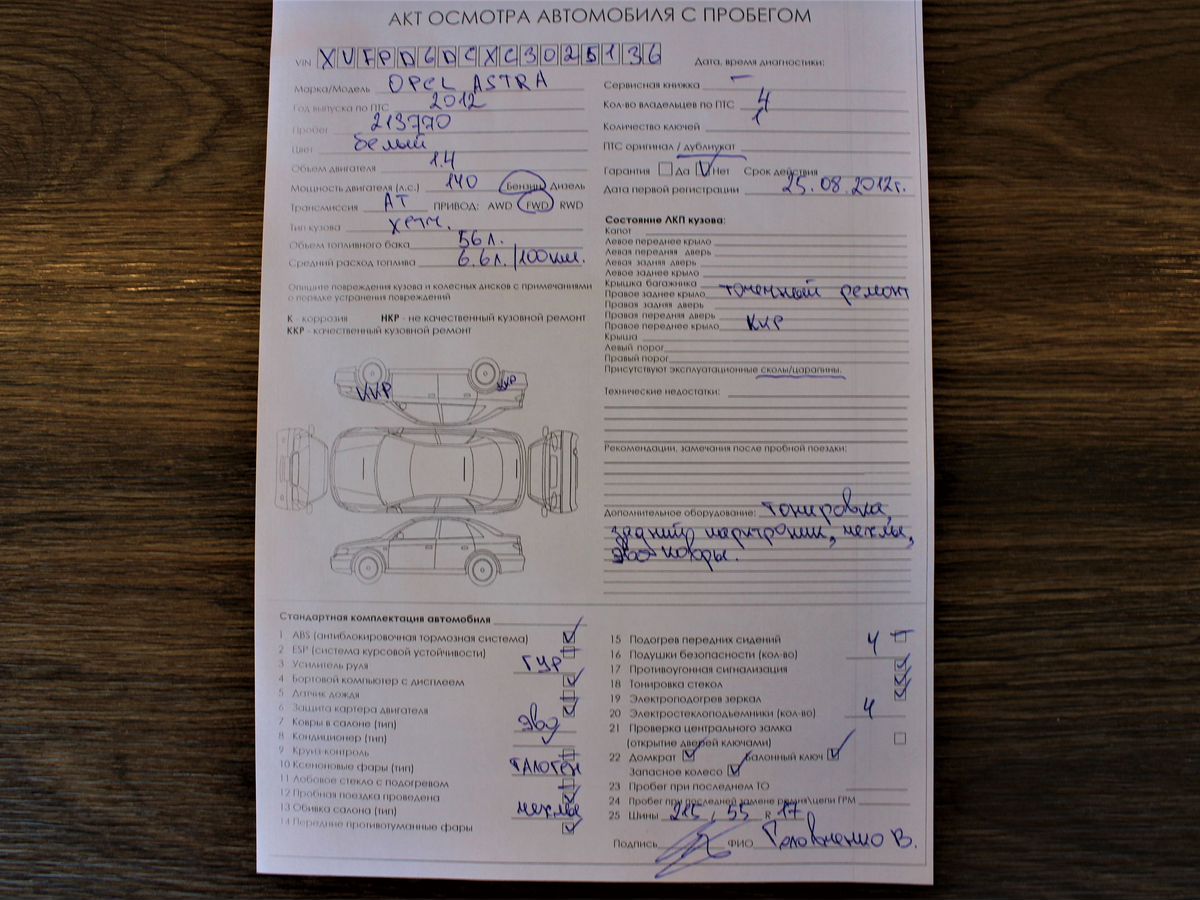 АКТ ОСМОТРА АВТОМОБИЛЯ С ПРОБЕГОМ
VIN XUFPD6DCXC3025136
Дата, время диагностики:
Марка/Модель OPEL ASTRA
Год выпуска по ПТС 2012
Пробег 213770
Цвет белый
Объем двигателя 1.4
Мощность двигателя (л.с.) 140 Бензин Дизель
Трансмиссия АТ ПРИВОД: AWD FWD RWD
Тип кузова хетч.
Объем топливного бака 56 л.
Средний расход топлива 6.6 л./100км.
Опишите повреждения кузова и колесных дисков с примечаниями
о порядке устранения повреждений
К - коррозия НКР - не качественный кузовной ремонт
ККР - качественный кузовной ремонт
ККР ККР
Сервисная книжка –
Кол-во владельцев по ПТС 4
Количество ключей 1
ПТС оригинал / дубликат
Гарантия Да Нет Срок действия
Дата первой регистрации 25.08.2012г.
Состояние ЛКП кузова:
Капот
Левое переднее крыло
Левая передняя дверь
Левая задняя дверь
Левое заднее крыло
Крышка багажника
Правое заднее крыло точечный ремонт
Правая задняя дверь
Правая передняя дверь
Правое переднее крыло ККР
Крыша
Левый порог
Правый порог
Присутствуют эксплуатационные сколы/царапины.
Технические недостатки:
Рекомендации, замечания после пробной поездки:
Дополнительное оборудование: тонировка,
задний парктроник, чехлы,
эво ковры.
Стандартная комплектация автомобиля
1 ABS (антиблокировочная тормозная система)
2 ESP (система курсовой устойчивости)
3 Усилитель руля ГУР
4 Бортовой компьютер с дисплеем
5 Датчик дождя
6 Защита картера двигателя
7 Ковры в салоне (тип) эво
8 Кондиционер (тип)
9 Круиз-контроль
10 Ксеноновые фары (тип) ГАЛОГЕН
11 Лобовое стекло с подогревом
12 Пробная поездка проведена
13 Обивка салона (тип) чехлы
14 Передние противотуманные фары
15 Подогрев передних сидений
16 Подушки безопасности (кол-во) 4
17 Противоугонная сигнализация
18 Тонировка стекол
19 Электроподогрев зеркал
20 Электростеклоподъемники (кол-во) 4
21 Проверка центрального замка
(открытие дверей ключами)
22 Домкрат Балонный ключ
Запасное колесо
23 Пробег при последнем ТО
24 Пробег при последней замене ремня/цепи ГРМ
25 Шины 215 / 55 R 17
Подпись ФИО Головненко В.